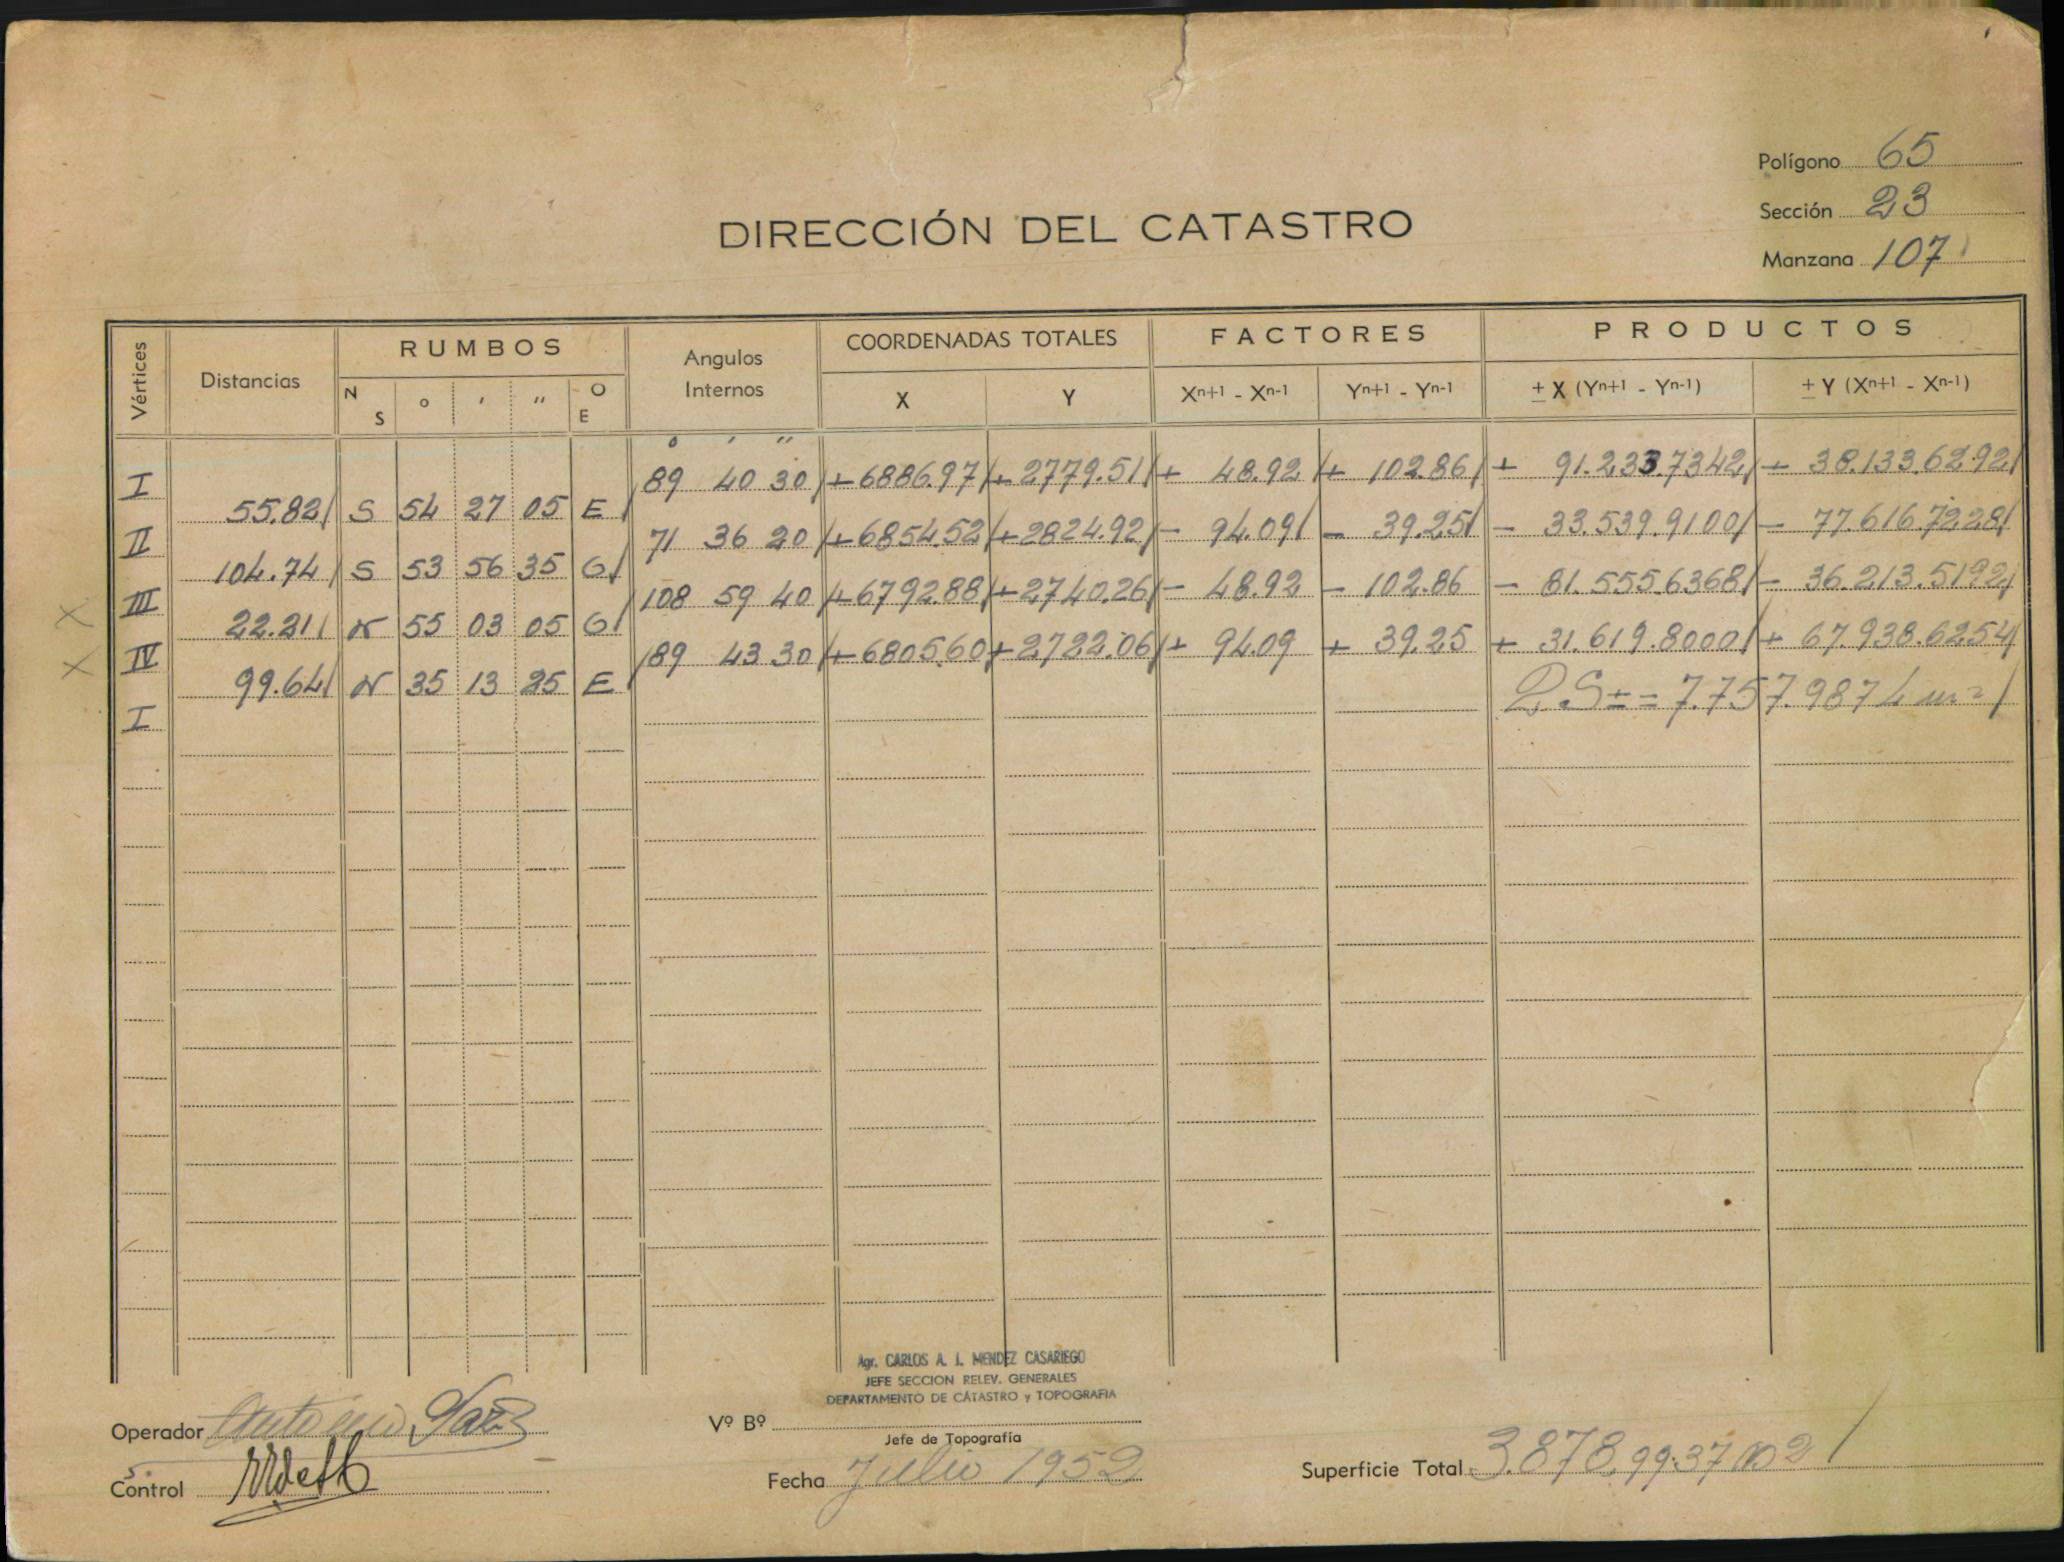 Polígono 65
Sección 23
Manzana 107
DIRECCIÓN DEL CATASTRO
Vértices Distancias RUMBOS Angulos Internos COORDENADAS TOTALES FACTORES PRODUCTOS
N S ° ' " O E X Y Xn+1 - Xn-1 Yn+1 - Yn-1 ± X (Yn+1 - Yn-1) ± Y (Xn+1 - Xn-1)
° ' "
I 89 40 30 +6886.97 +2779.51 + 48.92 + 102.86 + 91.233.7342 + 38.133.6292
55.82 S 54 27 05 E
II 71 36 20 +6854.52 +2824.92 - 94.09 - 39.25 - 33.539.9100 - 77.616.7228
104.74 S 53 56 35 O
X III 108 59 40 +6792.88 +2740.26 - 48.92 - 102.86 - 81.555.6368 - 36.213.5192
22.21 N 55 03 05 O
X IV 89 43 30 +6805.60 +2722.06 + 94.09 + 39.25 + 31.619.8000 + 67.938.6254
99.64 N 35 13 25 E
I 2S± = 7.757.9874 m²
Agr. CARLOS A. I. MENDEZ CASARIEGO
JEFE SECCION RELEV. GENERALES
DEPARTAMENTO DE CATASTRO y TOPOGRAFIA
Operador Antonio
Vº Bº
Jefe de Topografía
Control
Fecha Julio 1952
Superficie Total 3.878,9937 m2